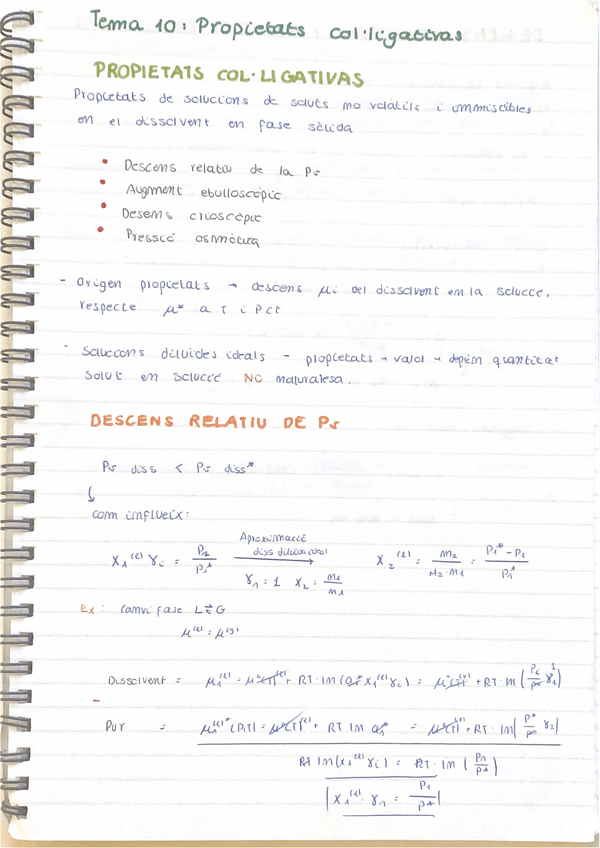 Tema 10: Propietats col·ligativas
PROPIETATS COL·LIGATIVAS
Propietats de solucions de soluts no volàtils i inmiscibles
en el dissolvent en fase sòlida
• Descens relatiu de la Pv
• Augment ebulloscòpic
• Desens crioscòpic
• Pressió osmòtica
- Origen propietats → descens μi del dissolvent en la solució,
respecte μ* a T i P ct
- Solucions diluides ideals - propietats → valor → depèn quantitat
solut en solució NO naturalesa.
DESCENS RELATIU DE Pv
Pv diss < Pv diss*
com influeix:
Aproximació
diss diluida ideal
X₁⁽ˡ⁾ γi = P₁/P₁* → γ₁ = 1 X₂ = n₂/n₁ X₂⁽ˡ⁾ = n₂/n₂·n₁ = P₁* - P₁/P₁*
Ex: Canvi fase L⇌G
μ⁽ˡ⁾ = μ⁽ᵍ⁾
Dissolvent =
Pur =
RT ln(x₁⁽ˡ⁾ γi) = RT · ln (P₁/P*)
X₁⁽ˡ⁾ · γ₁ = P₁/P*